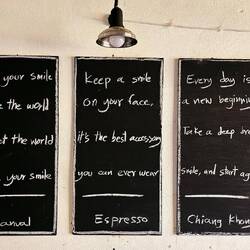 your smile
the world
et the world
your smile
anual
Keep a smile
on your face,
it's the best accessory
you can ever wear
Espresso
Every day is
a new beginning
Take a deep brea
smile, and start ag
Chiang Khon